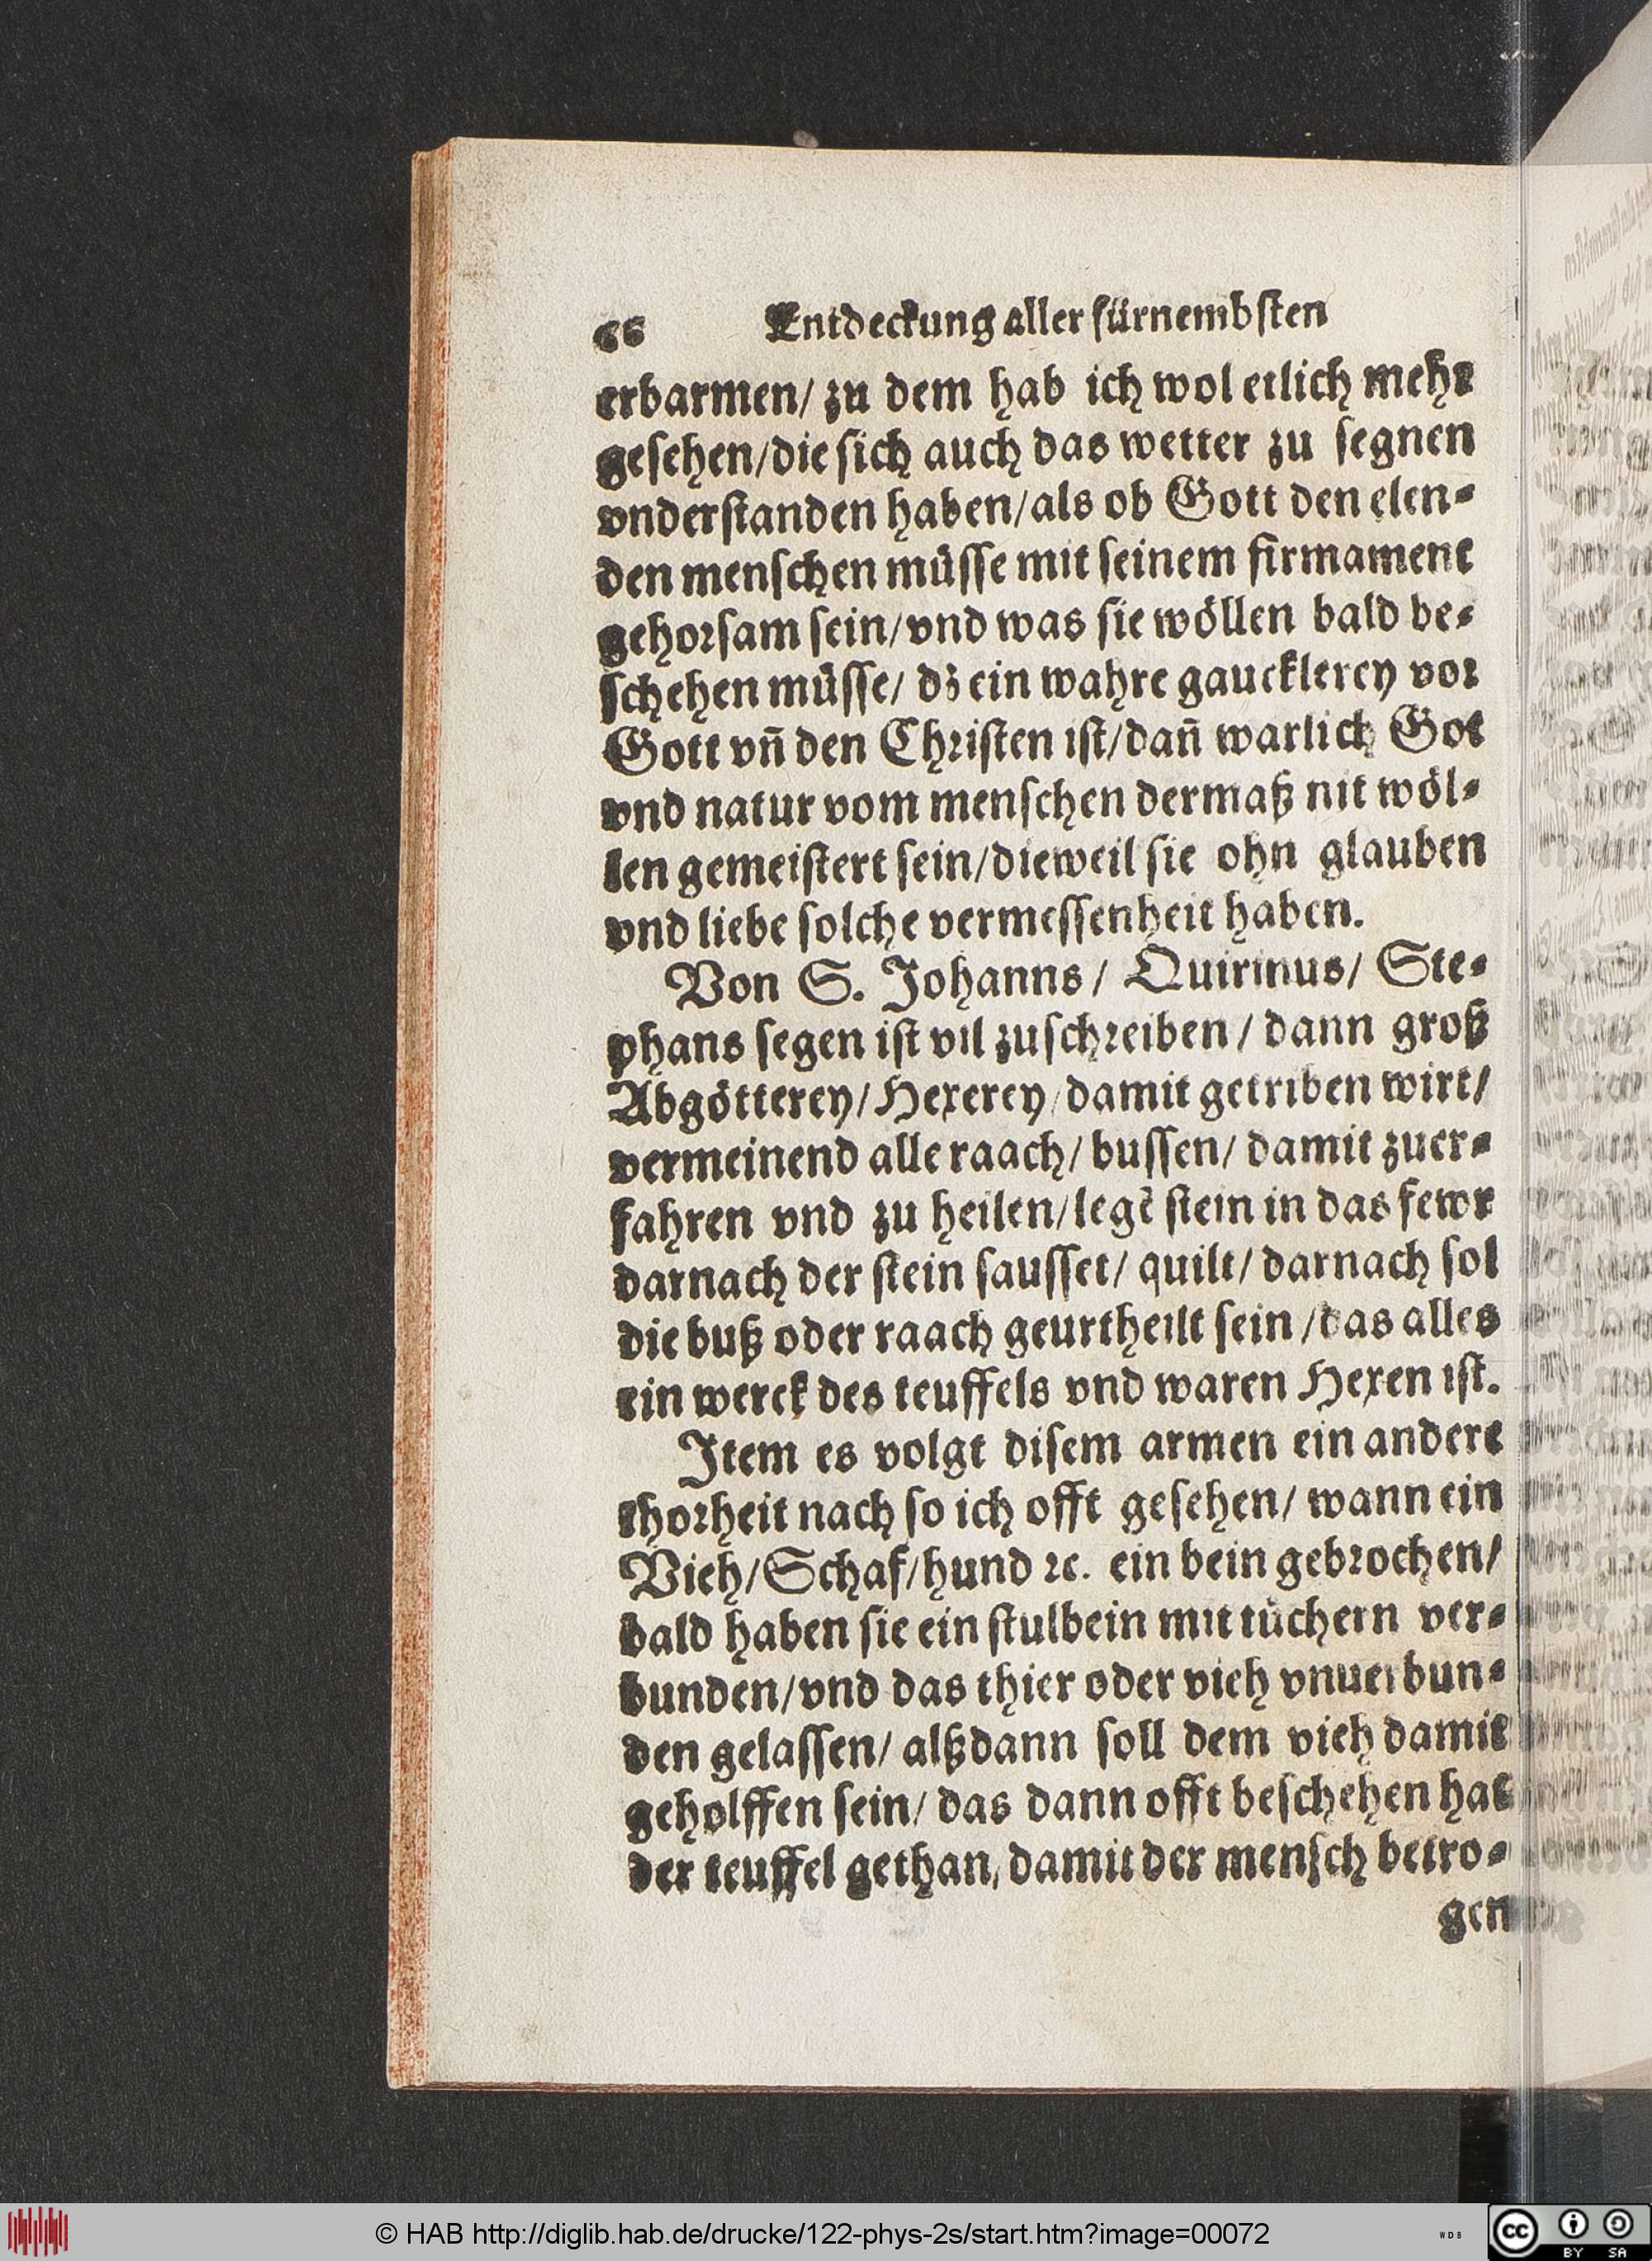 66 Entdeckung aller fürnembsten
erbarmen/ zu dem hab ich wol etlich mehr
gesehen/die sich auch das wetter zu segnen
vnderstanden haben/als ob Gott den elen-
den menschen müsse mit seinem firmament
gehorsam sein/vnd was sie wöllen bald be-
schehen müsse/ dz ein wahre gaucklerey vor
Gott vñ den Christen ist/dañ warlich Got
vnd natur vom menschen dermaß nit wöl-
len gemeistert sein/dieweil sie ohn glauben
vnd liebe solche vermessenheit haben.
Von S. Johanns/ Quirinus/ Ste-
phans segen ist vil zuschreiben/ dann groß
Abgötterey/Hexerey/damit getriben wirt/
vermeinend alle raach/ bussen/ damit zuer-
fahren vnd zu heilen/legẽ stein in das fewr
darnach der stein sausset/ quilt/ darnach sol
die buß oder raach geurtheilt sein/das alles
ein werck des teuffels vnd waren Hexen ist.
Item es volgt disem armen ein andere
thorheit nach so ich offt gesehen/ wann ein
Vieh/Schaf/hund ꝛc. ein bein gebrochen/
bald haben sie ein stulbein mit tüchern ver-
bunden/vnd das thier oder vieh vnuerbun-
den gelassen/ alßdann soll dem vieh damit
geholffen sein/ das dann offt beschehen hat
der teuffel gethan, damit der mensch betro-
gen
© HAB http://diglib.hab.de/drucke/122-phys-2s/start.htm?image=00072
WDB
cc BY SA